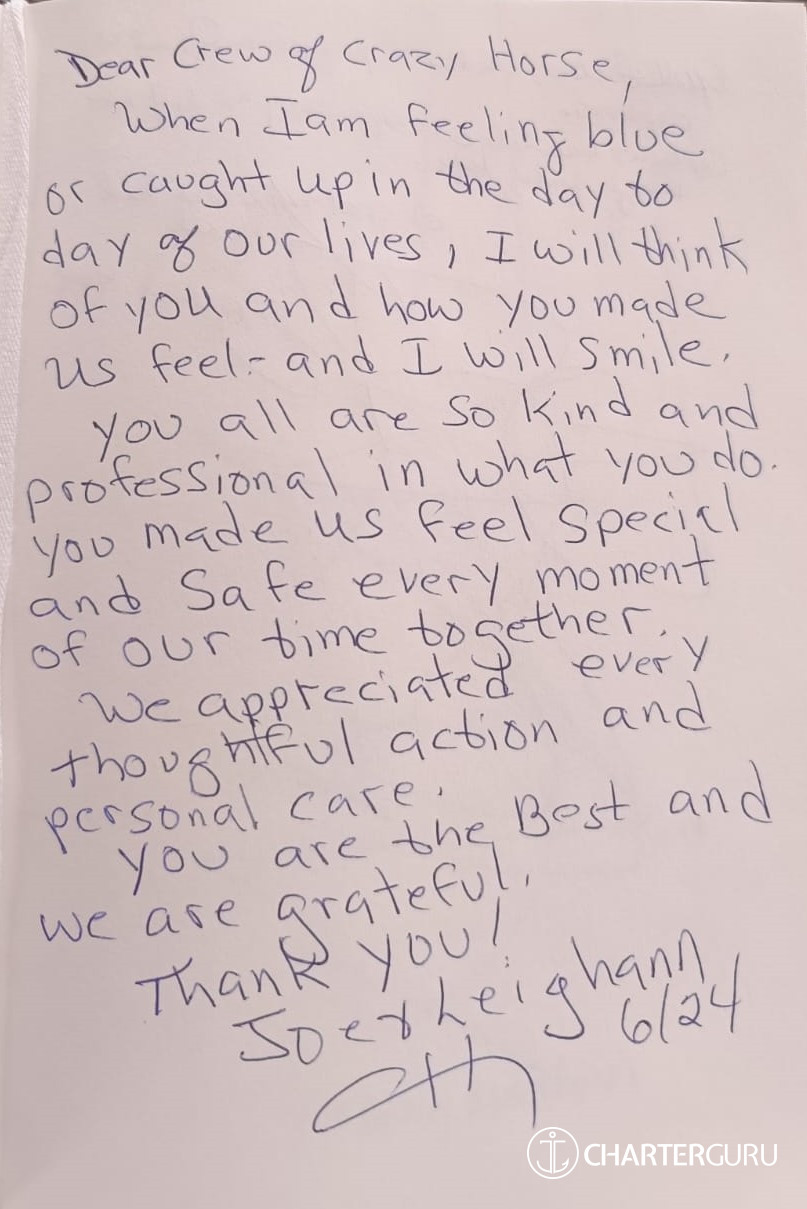 Dear Crew of Crazy Horse,
When I am feeling blue
or caught up in the day to
day of our lives, I will think
of you and how you made
us feel - and I will smile.
you all are so kind and
professional in what you do.
you made us feel special
and safe every moment
of our time together.
We appreciated every
thoughtful action and
personal care.
you are the Best and
we are grateful.
Thank you!
Joe & Leighann
6/24
CHARTERGURU